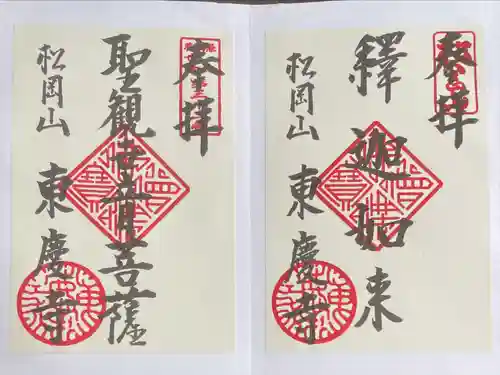 奉拝
聖観世音菩薩
松岡山 東慶寺
奉拝
釋迦如来
松岡山 東慶寺